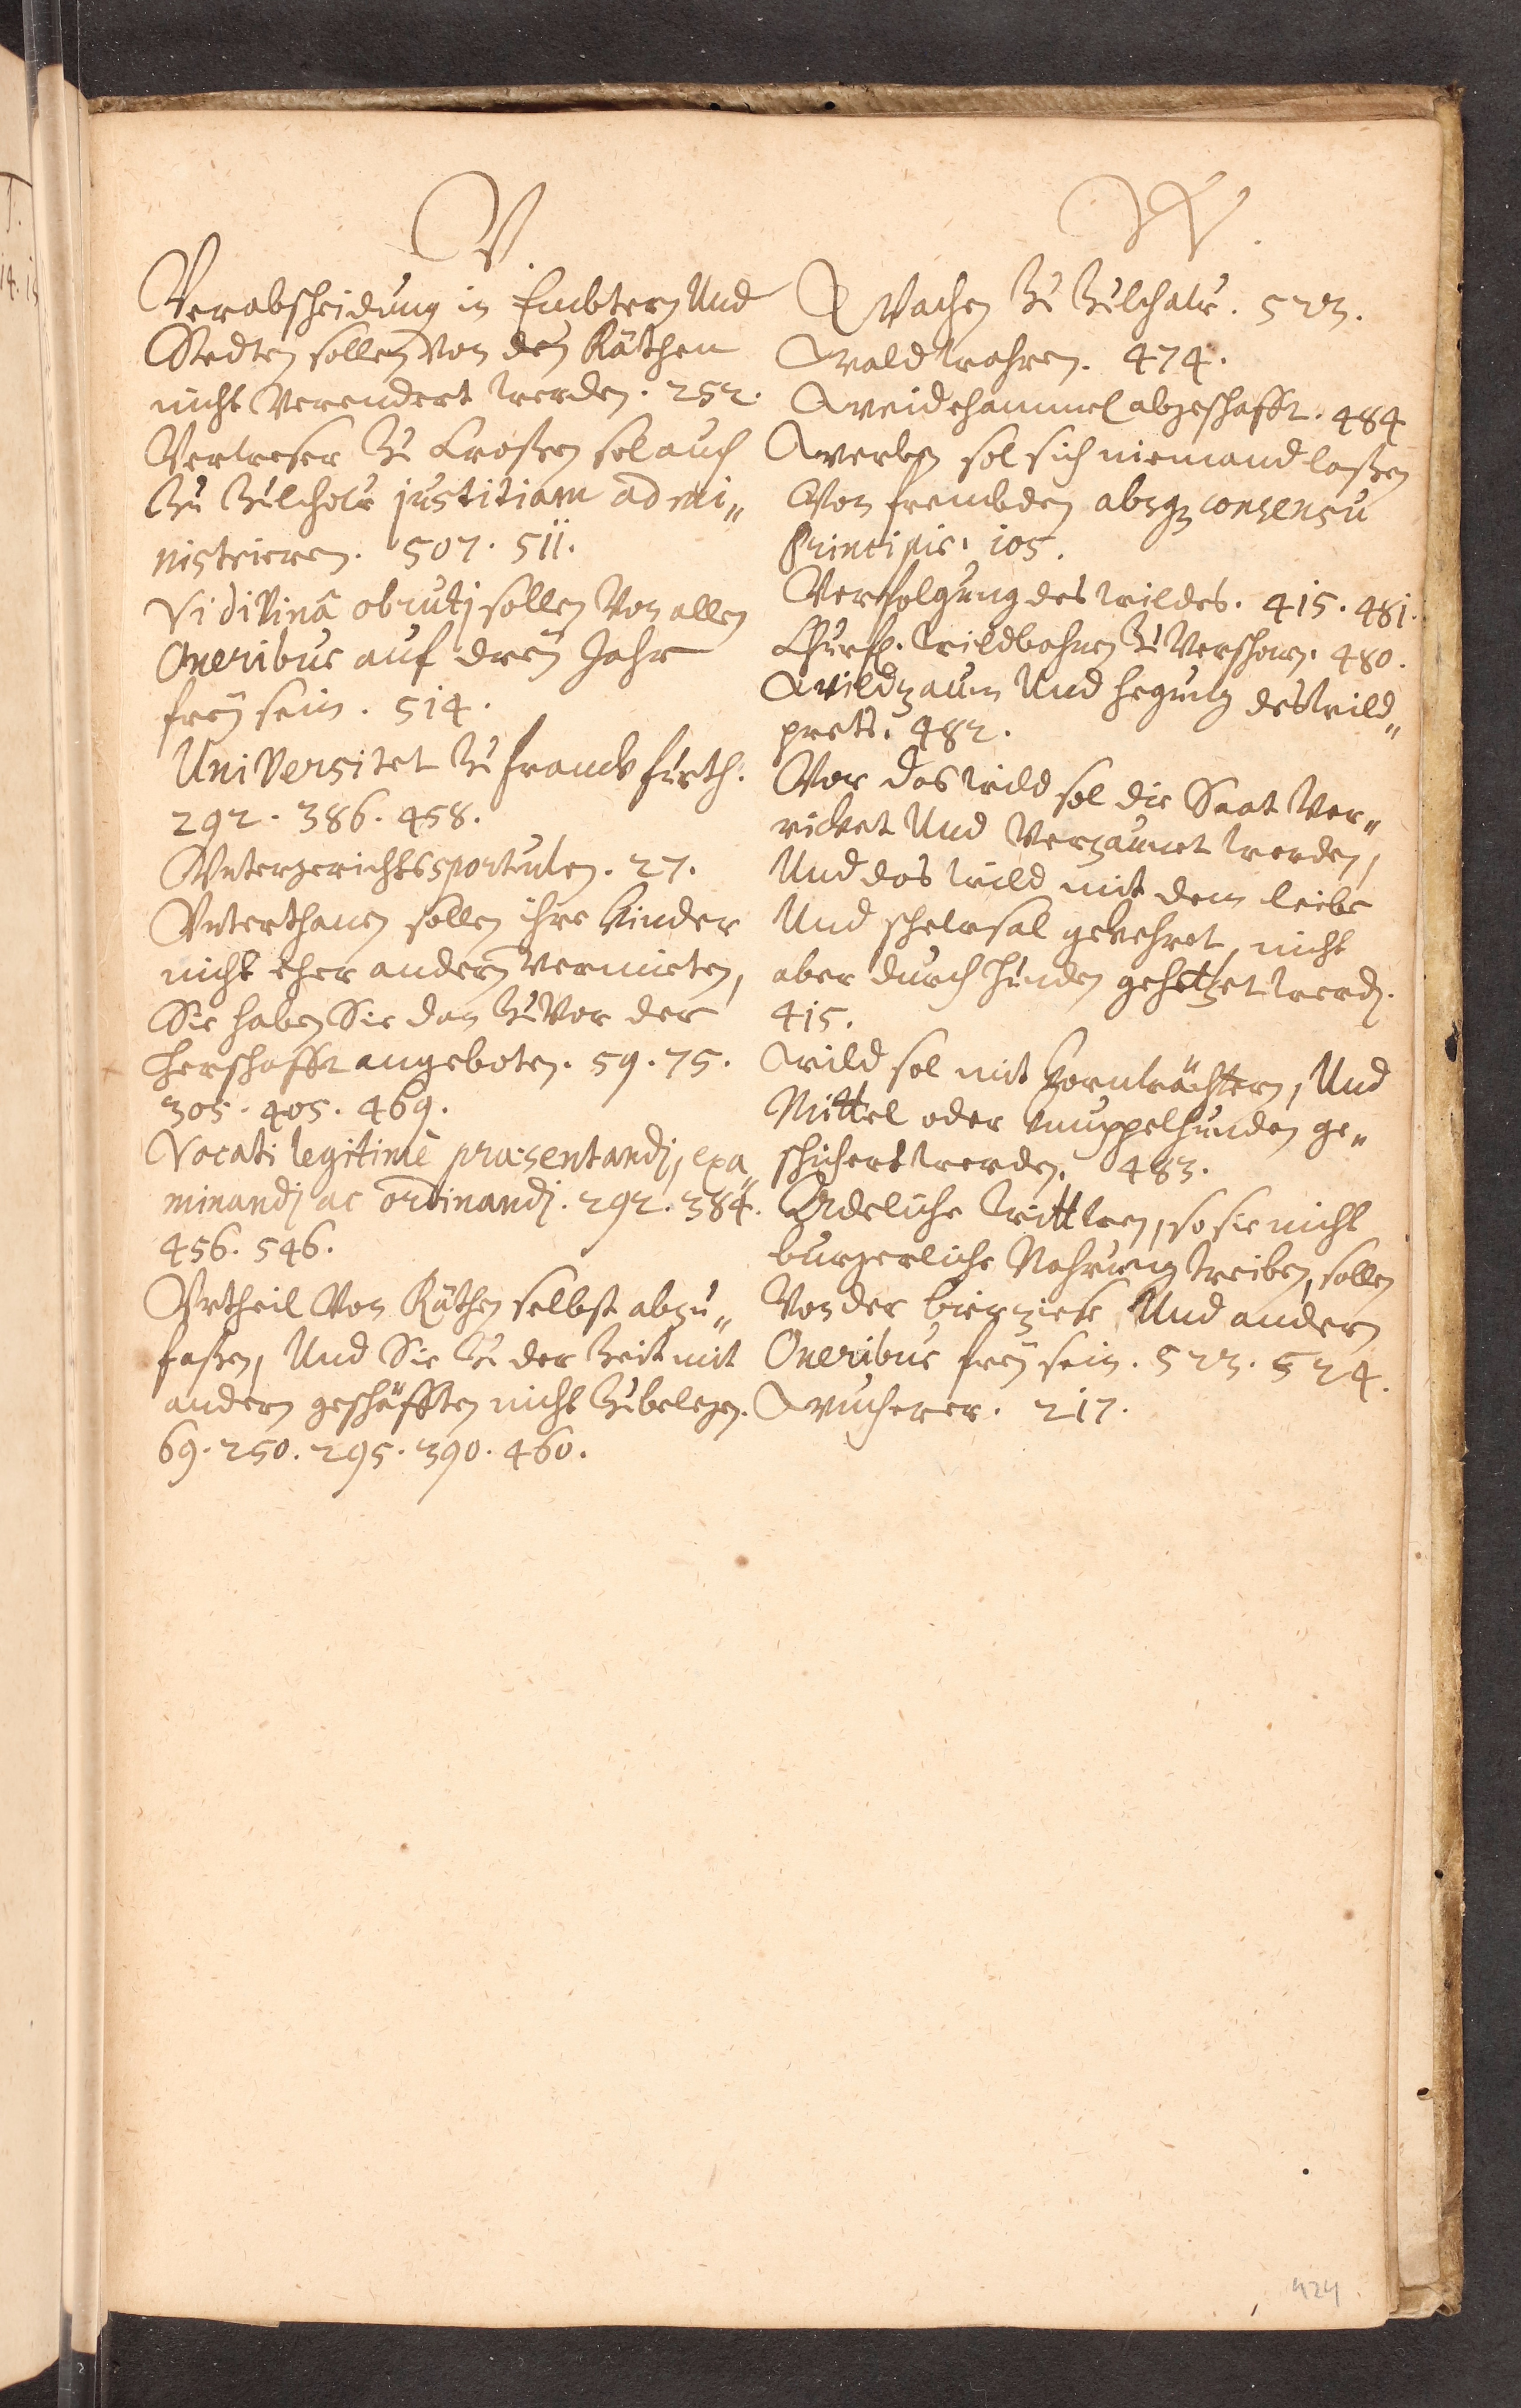 V.
Verabscheidung in Embtern Und
Stedten sollen Von den Räthen
nicht Verendert werden. 252.
Verweser Zu Croßen sol auch
Zu Zülchow justitiam admi„
nistrieren. 507. 511.
Vi diVinâ obrutj sollen Von allen
Oneribus auf dreÿ Jahr
freÿ sein. 514.
UniVersitet Zu franckfurth.
292. 386. 458.
Vntergerichtssportulen. 27.
Vnterthanen sollen ihre Kinder
nicht eher andern Vermieten,
Sie haben Sie dan ZuVor der
herschafft angeboten. 59. 75.
305. 405. 469.
Vocati legitimè præsentandj, exa„
minandj ac ordinandj. 292. 384.
456. 546.
Vrtheil Von Räthen selbst abzu„
faßen, Und Sie Zu der Zeit mit
andern geschäfften nicht Zubelegen.
69. 250. 295. 390. 460.
W.
Wachen Zu Zülchow. 523.
Waldwahren. 474.
Weidehammel abgeschafft. 484
Werben sol sich niemand laßen
Von frembden absque consensu
Principis. 105.
Verfolgung des wildes. 415. 481.
Churf. Wildbahnen Zu Verschonen. 480.
Wildzaun Und hegung des Wild„
prets. 482.
Vor das wild sol die Saat Ver„
ricket Und Verzäunet werden,
Und das wild mit dem leibe
Und schewsal gekehret, nicht
aber durch hunden gehetzet werden.
415.
Wild sol mit Kornwächtern, Und
Mittel oder Knuppelhunden ge„
schichert werden. 483.
Adeliche Wittwen, so sie nicht
burgerliche Nahrung treiben, sollen
Von der bierziese Und andern
Oneribus freÿ sein. 523. 524.
Wucherer. 217.
424